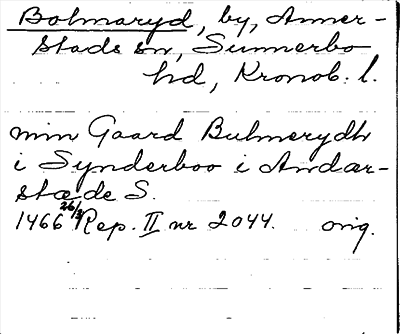 Bolmaryd, by, Anner-
stads sn, Sunnerbo
hd, Kronob. l.
min Gaard Bulmerydh
i Synderboo i Andar-
stæde S.
1466 26/3 Rep. II nr 2044. orig.